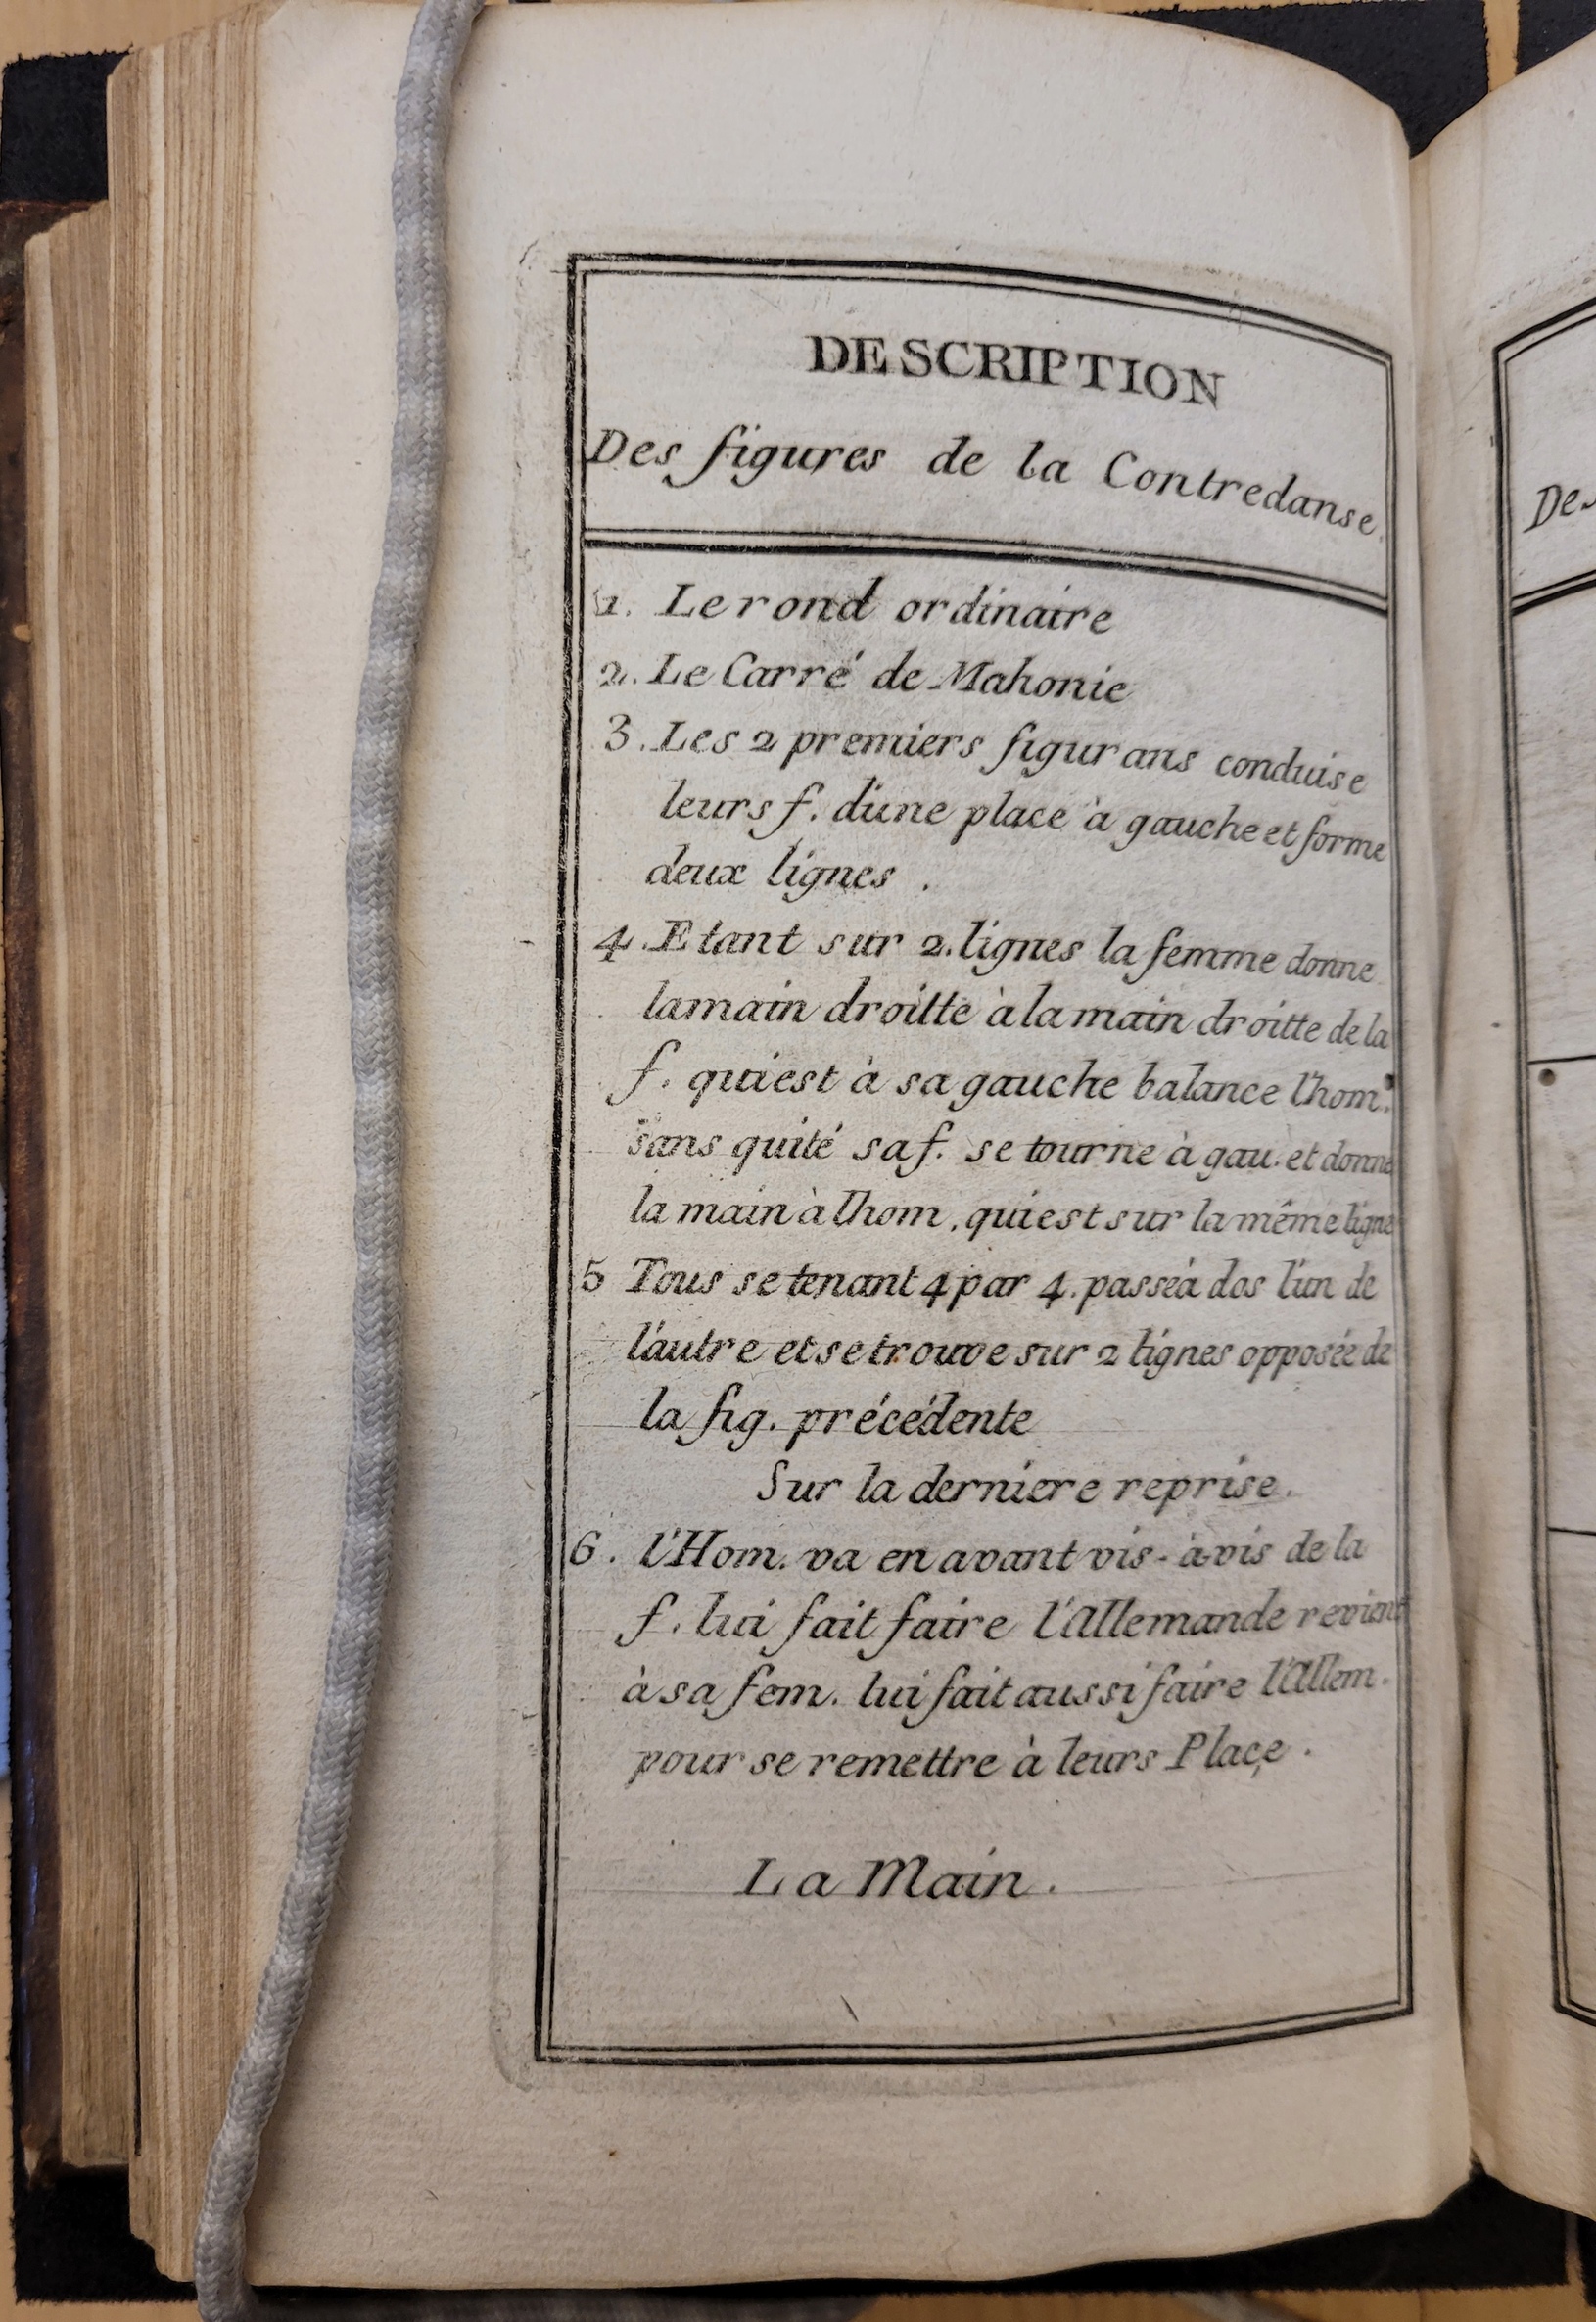 DESCRIPTION
Des figures de la Contredanse
1. Le rond ordinaire
2. Le Carré de Mahonie
3. Les 2 premiers figurans conduise
leurs f. dúne place à gauche et forme
deux lignes .
4. Etant sur 2. lignes la femme donne
la main droitte à la main droitte de la
f. qui est à sa gauche balance l'hom.
sans quité sa f. se tourne à gau. et donne
la main à l'hom. qui est sur la même ligne
5 Tous se tenant 4 par 4. passe à dos l'un de
l'autre et se trouve sur 2 lignes opposée de
la fig. précédente
Sur la derniere reprise.
6. l'Hom. va en avant vis-à-vis de la
f. lui fait faire l'Allemande revient
à sa fem. lui fait aussi faire l'Allem.
pour se remettre à leurs Place .
La Main .
De